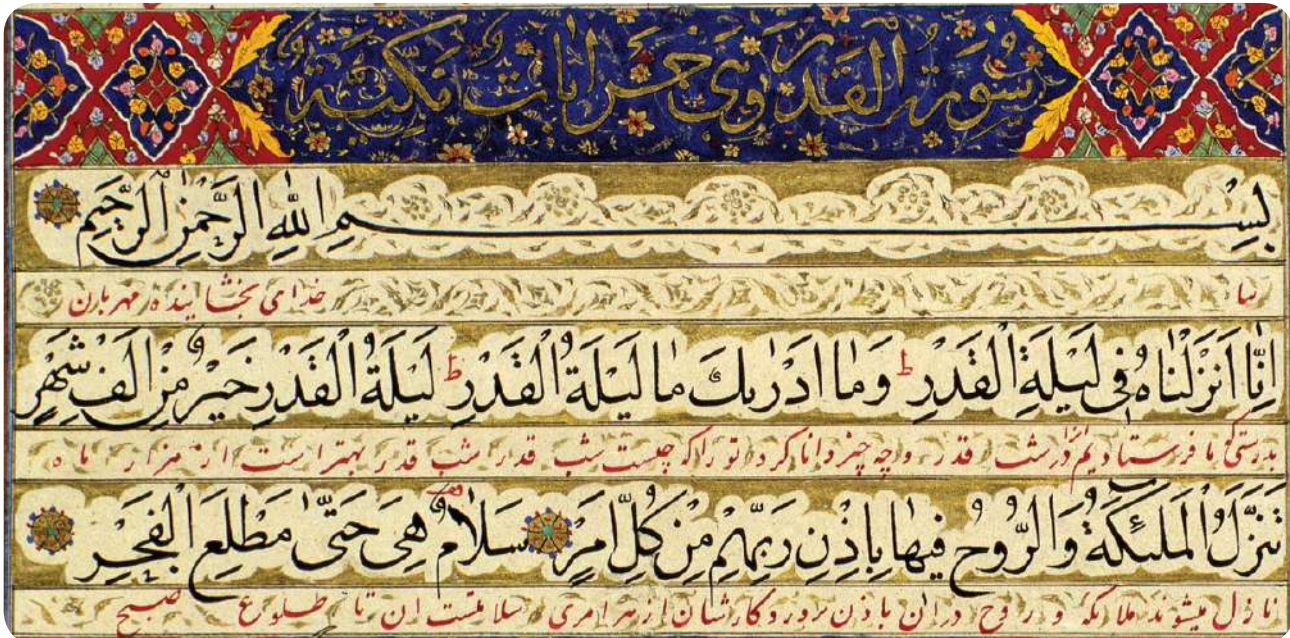 سُورَةُ الْقَدْرِ وَهِیَ اٰیات مَكِّیَّة
بِسْمِ اللّٰهِ الرَّحْمٰنِ الرَّحِیمِ
خدای بخشاینده مهربان
اِنّٰا اَنْزَلْنٰاهُ فِی لَیْلَةِ الْقَدْرِ ط وَمٰا اَدْرٰیكَ مٰا لَیْلَةُ الْقَدْرِ ط لَیْلَةُ الْقَدْرِ خَیْرٌ مِنْ اَلْفِ شَهْرٍ
بدرستی ما فرستادیم انرا در شب قدر و چه چیز دانا کرد تو را که چیست شب قدر شب قدر بهتر است از هزار ماه
تَنَزَّلُ الْمَلٰئِكَةُ وَالرُّوحُ فِیهٰا بِاِذْنِ رَبِّهِمْ مِنْ كُلِّ اَمْرٍ سَلاٰمٌ هِیَ حَتّٰی مَطْلَعِ الْفَجْرِ
نازل میشوند ملائکه و روح در ان باذن پروردکارشان از هر امری سلامتست ان تا طلوع صبح